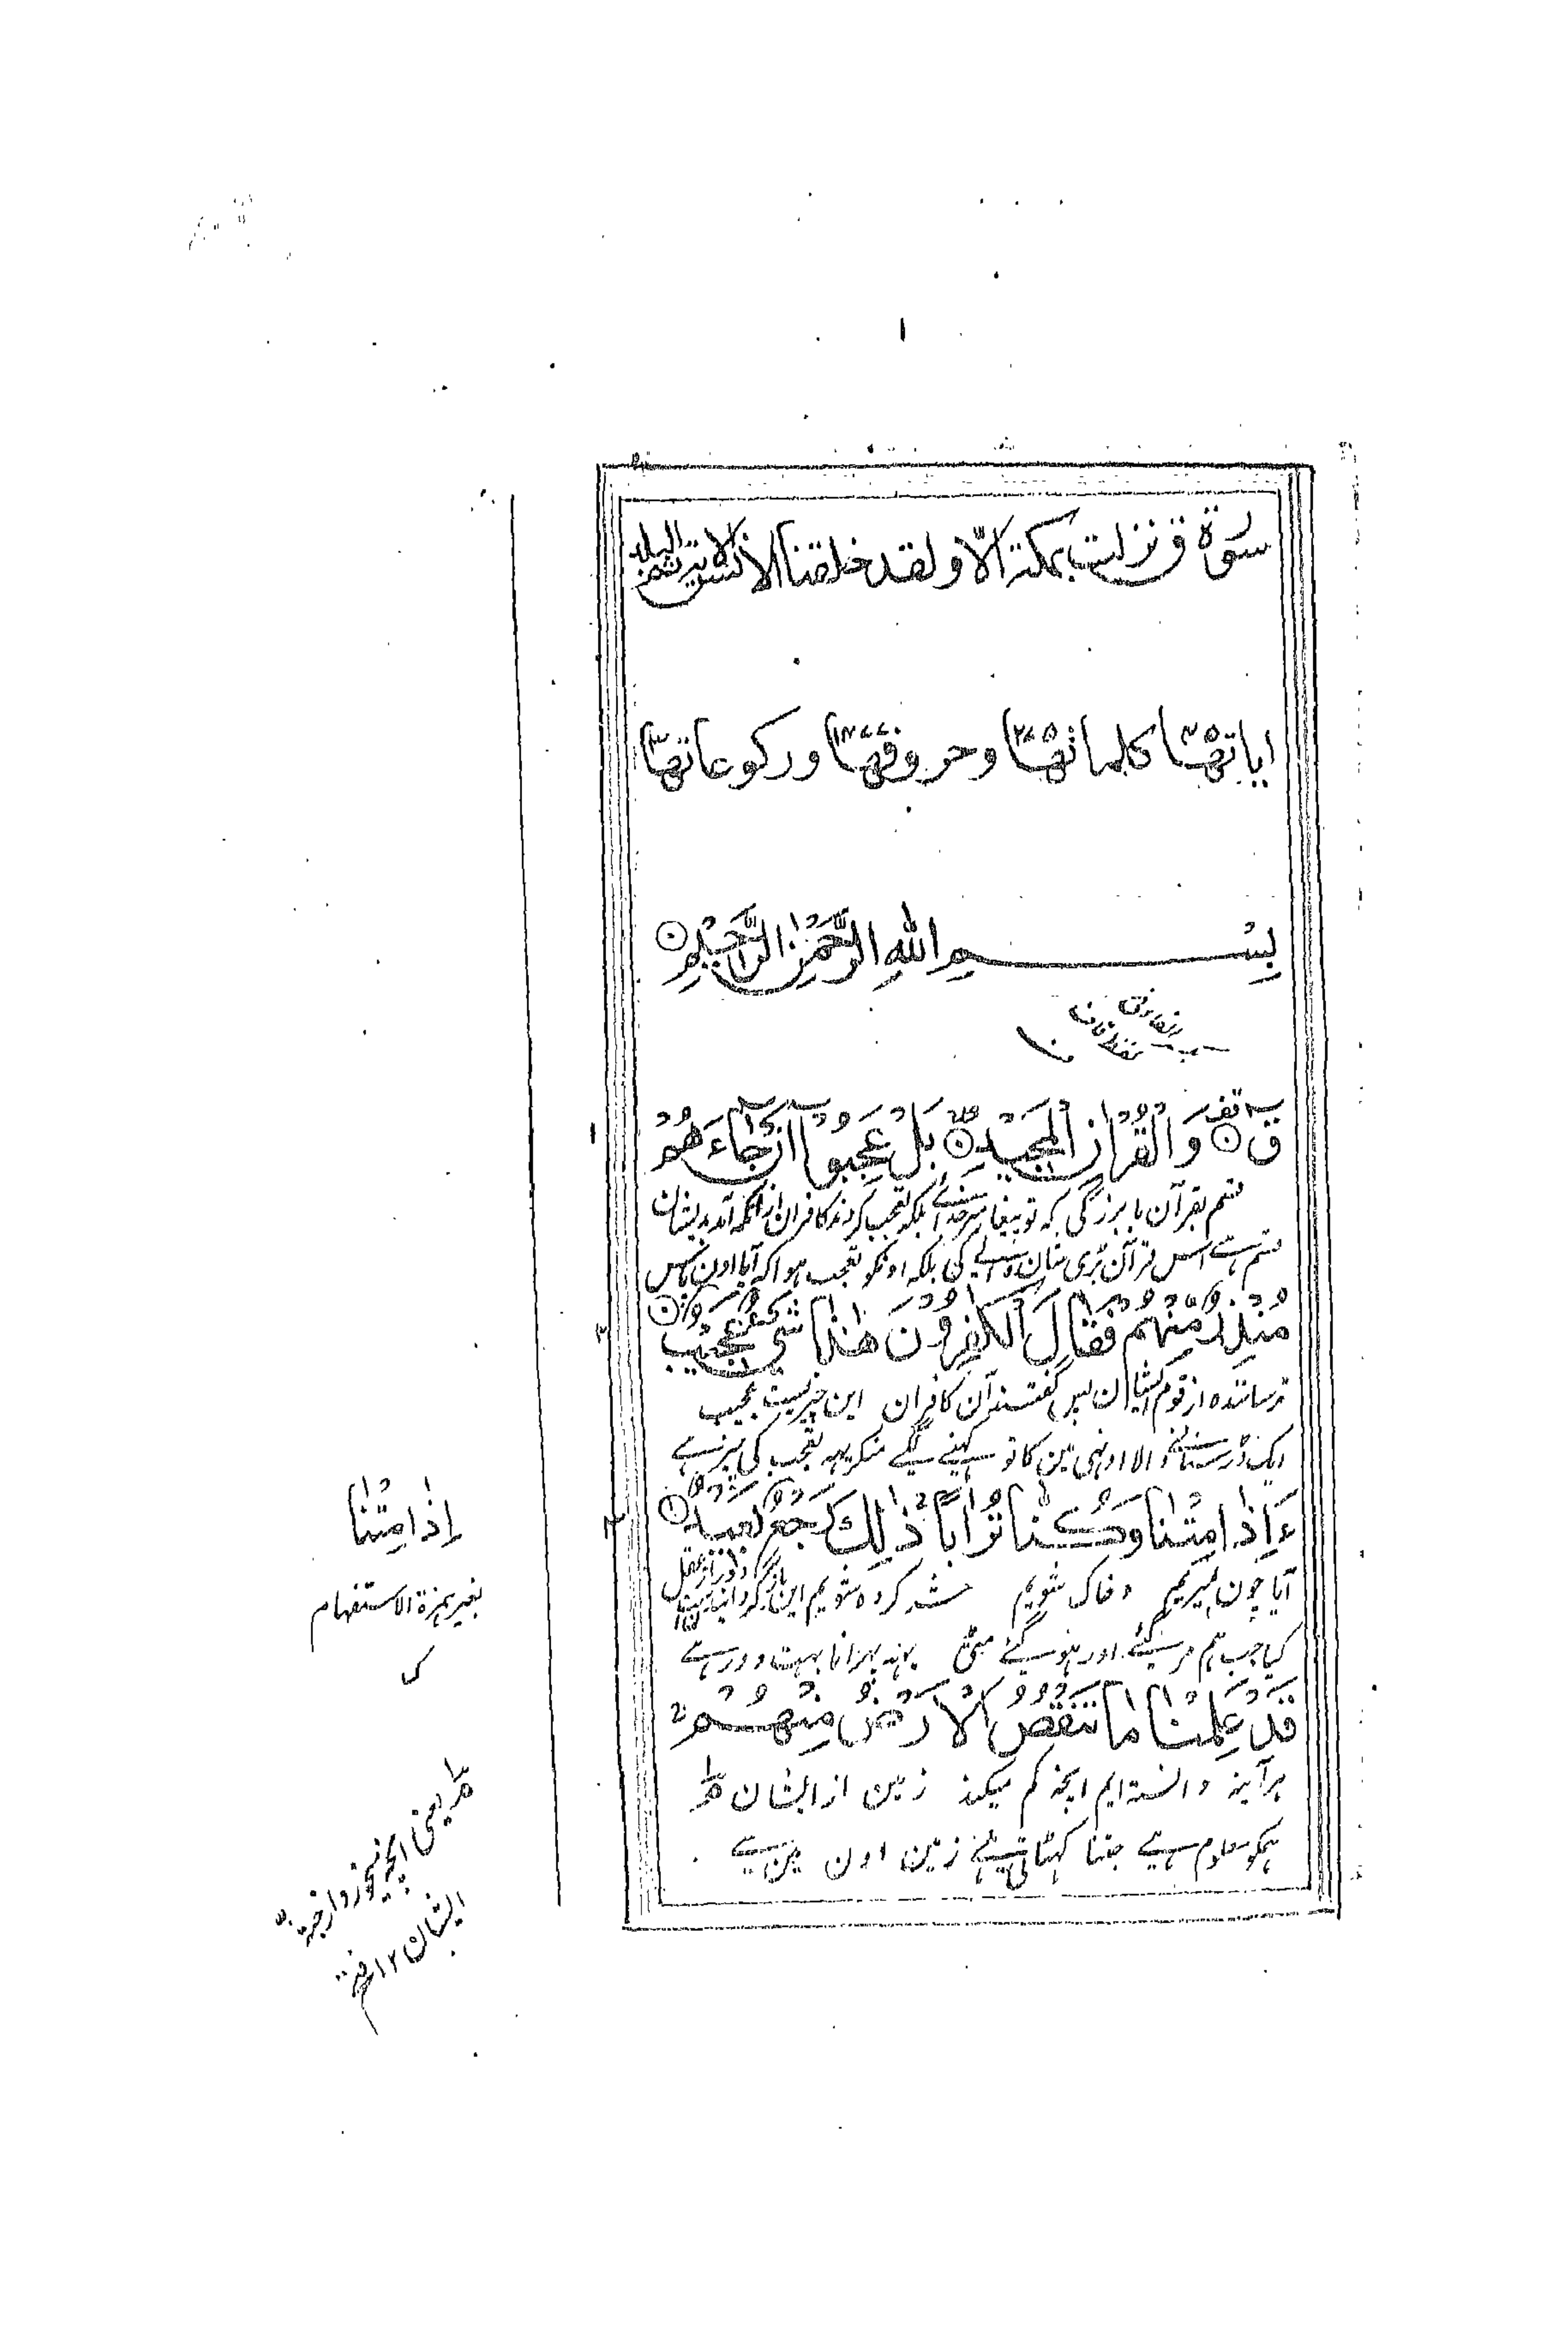 ١
سورة ق نزلت بمكة الا ولقد خلقنا الانسان الاية
اياتها ٤٥ كلماتها ٣٧٥ وحروفها ١٤٧٧ وركوعاتها ٣
بِسْمِ اللهِ الرَّحْمٰنِ الرَّحِيْمِ
قٓ وَالْقُرْاٰنِ الْمَجِيْدِ بَلْ عَجِبُوْٓا اَنْ جَآءَهُمْ
قسم بقرآن با بزرگی که تو پیغامبر خدائی بلکه تعجب کردند کافران ازانکه آمد بدیشان
قسم ہے اس قرآن بڑی شان والے کی بلکہ اونکو تعجب ہوا کہ آیا اون پاس
مُنْذِرٌ مِّنْهُمْ فَقَالَ الْكٰفِرُوْنَ هٰذَا شَىْءٌ عَجِيْبٌ
ترساننده از قوم ایشان پس گفتند آن کافران این چیزیست عجیب
ایک ڈر سنانے والا اونہی مین کا تو کہنے لگے منکر یہہ تعجب کی چیز ہے
ءَاِذَا مِتْنَا وَكُنَّا تُرَابًا ذٰلِكَ رَجْعٌ بَعِيْدٌ
آیا چون بمیریم و خاک شویم حشر کرده شویم این باز گردانیدن دور از عقل
کیا جب ہم مر گئے اور ہو گئے مٹی یہہ پہر انا بہت دور ہے
قَدْ عَلِمْنَا مَا تَنْقُصُ الْاَرْضُ مِنْهُمْ
هر آینه دانسته ایم انچه کم میکند زمین از ایشان
ہمکو معلوم ہے جتنا گہٹاتی ہے زمین اون مین سے
اِذَا مِتْنَا
بغیر همزة الاستفهام
یعنی انچه میخورد از جثة
ایشان ١٢